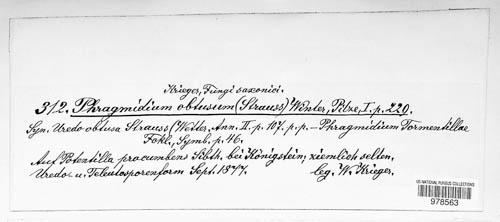 Krieger, Fungi saxonici.
312. Phragmidium obtusum (Strauss) Winter, Pilze, I. p. 229.
Syn. Uredo obtusa Strauss (Wetter. Ann. II. p. 107. p.p. – Phragmidium Tormentillae
Fckl., Symb. p. 46.
Auf Potentilla procumbens Sibth. bei Königstein; ziemlich selten.
Uredo- u. Teleutosporenform Sept. 1877. leg. W. Krieger.
US NATIONAL FUNGUS COLLECTIONS
978563